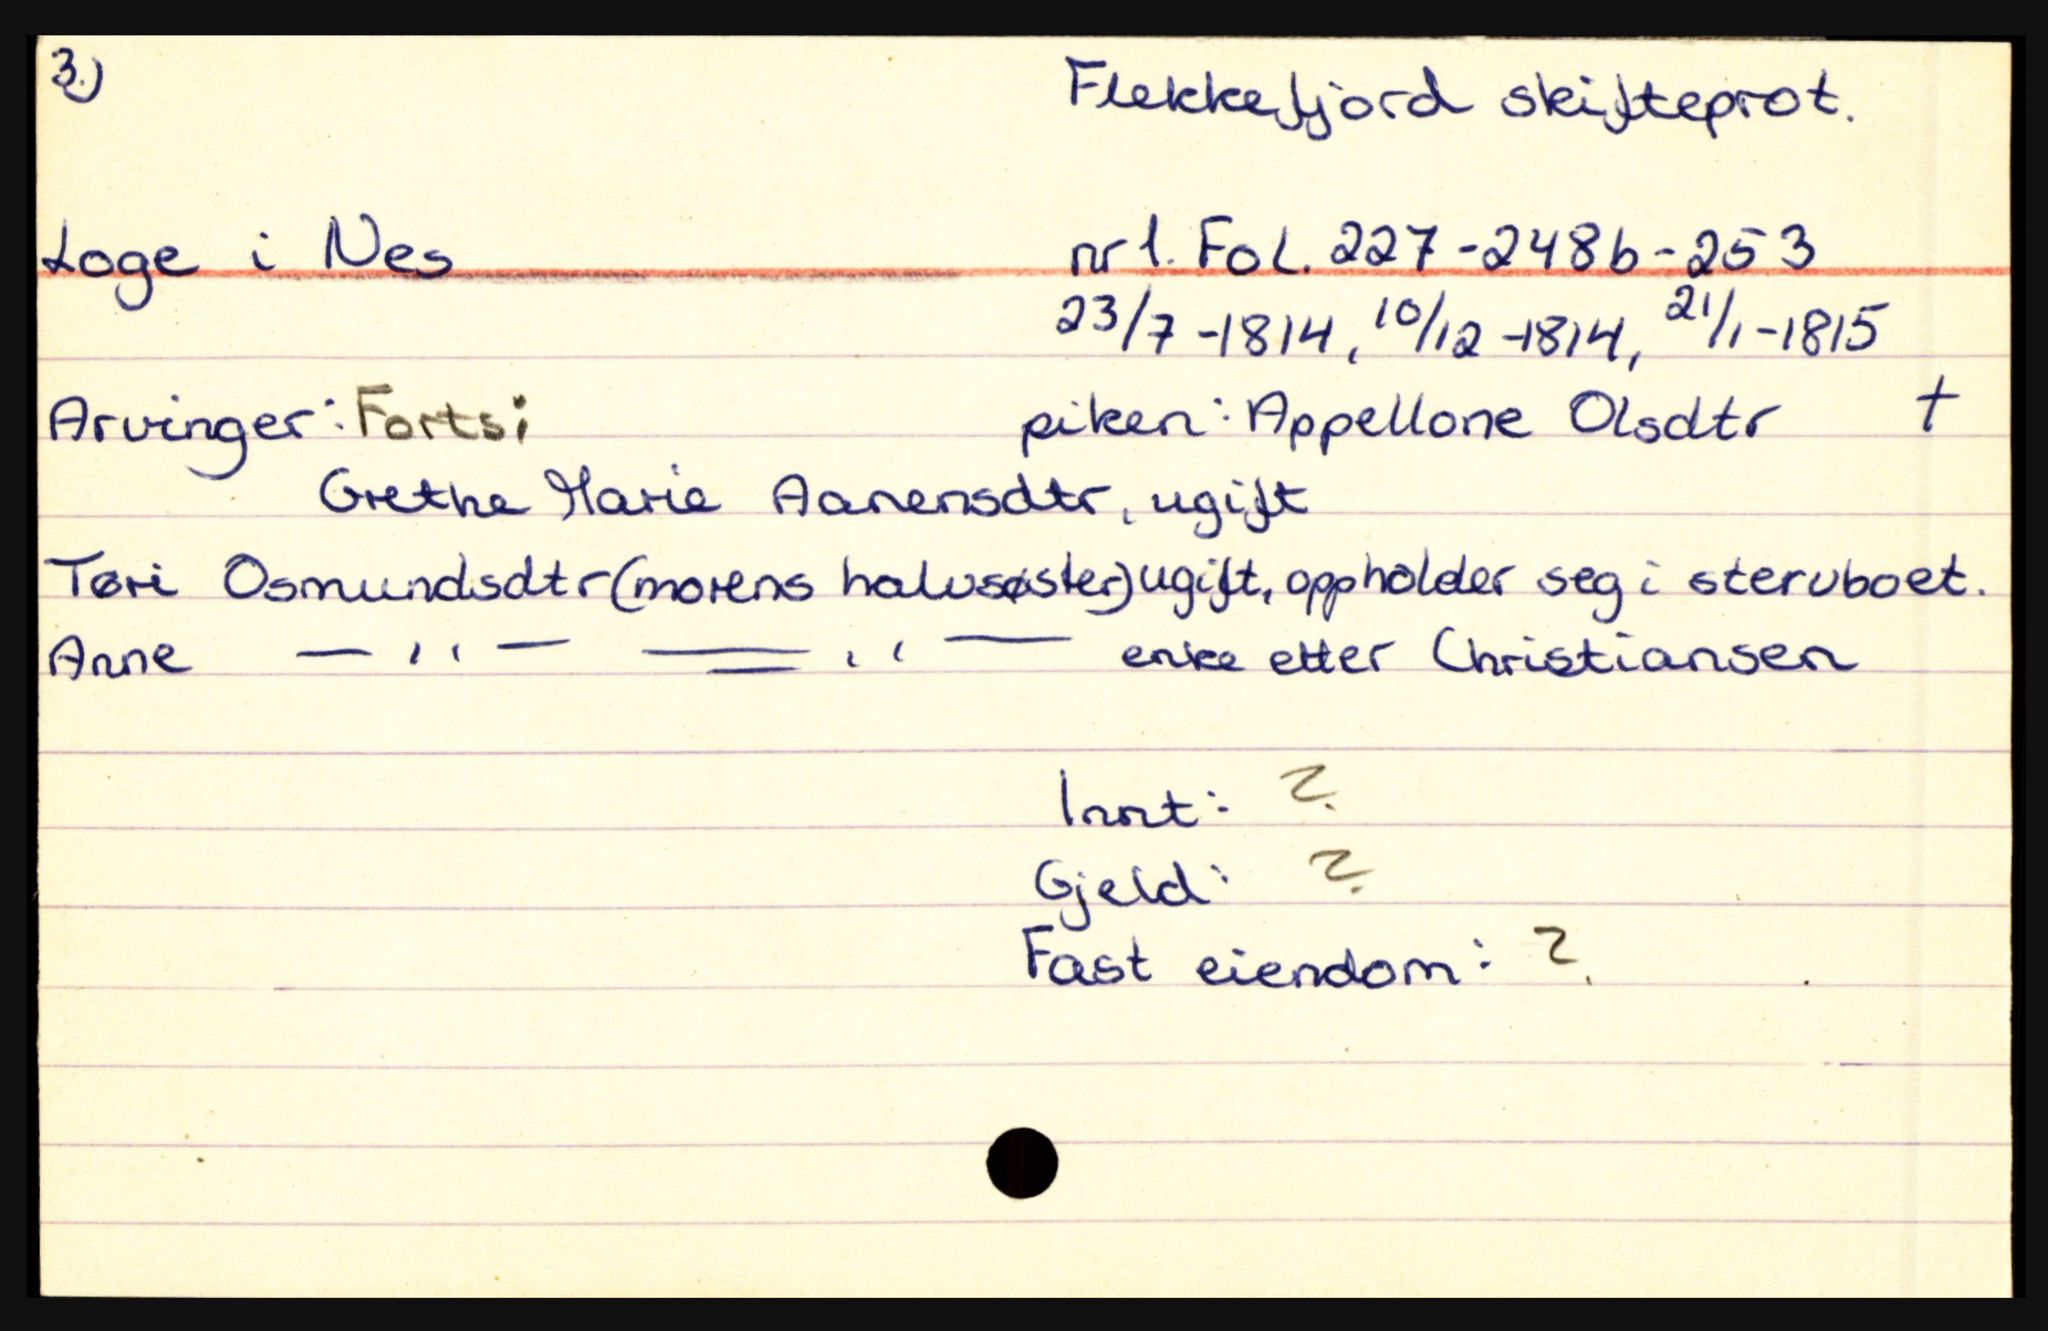 3.)
Flekkefjord skifteprot.
Loge i Nes
nr 1. Fol. 227-248b-253
23/7-1814, 10/12-1814, 21/1-1815
Arvinger: Forts; piken: Appellone Olsdtr †
Grethe Marie Aanensdtr, ugift
Tøri Osmundsdtr (morens halvsøster) ugift, oppholder seg i stervboet.
Anne — ,, — — ,, — enke etter Christiansen
Innt: ?
Gjeld: ?
Fast eiendom: ?